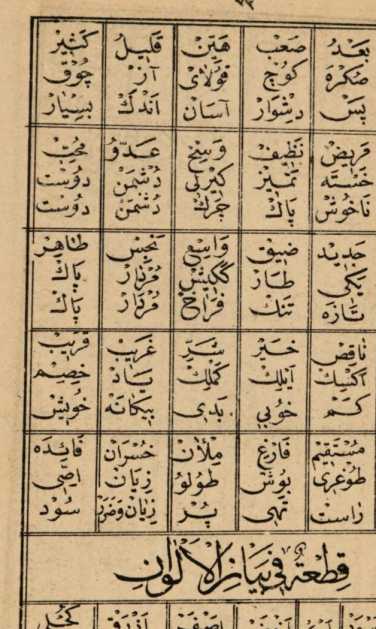 بَعْدُ صَعْب هَيِّن قَلِيلُ كَثِيْر
صكره كوج قولاى آز چوق
پس دشوار آسان اندك بسيار
مريض نظيف وسخ عدو محب
خسته تميز كيرلى دشمن دوست
ناخوش پاك چرك دشمن دوست
جديد ضيق واسع نجس طاهر
يكى طار كڭيش مردار پاك
تازه تنك فراخ مردار پاك
ناقص خير شر غريب قريب
اكسيك ايلك كملك ياد خصيم
كم خوبى بدى بيكانه خويش
مستقيم فارغ ملآن خسران فائده
طوغرى بوش طولو زيان اصى
راست تهى پر زيان وضرر سود
قطعة في بيان الالوان
ازرق كحلى